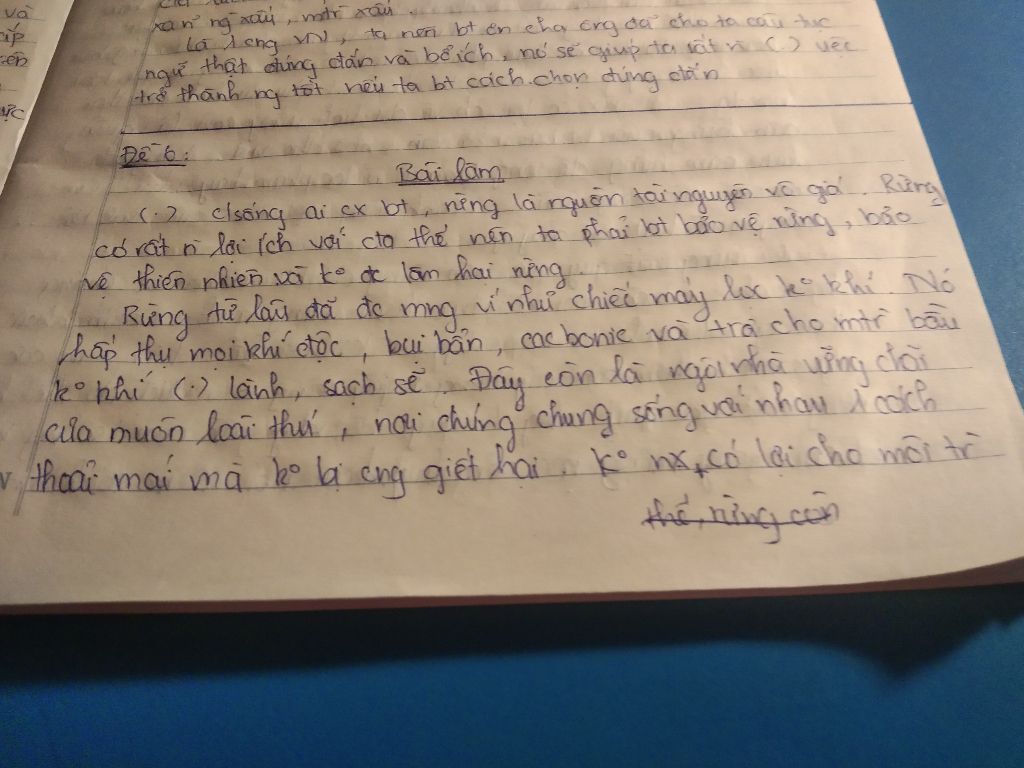 và
xấu, mtr xấu.
Là 1 cng VN, ta nên bt ơn cha ông đã cho ta câu tục
ngữ thật đúng đắn và bổ ích, nó sẽ giúp ta rất n (.) việc
trở thành ng tốt nếu ta bt cách chọn đúng đắn
Đề 6:
Bài làm
(.) c/sống ai cx bt, rừng là nguồn tài nguyên vô giá. Rừng
có rất n lợi ích với cta thế nên ta phải bt bảo vệ rừng, bảo
vệ thiên nhiên và ko đc làm hại rừng
Rừng từ lâu đã đc mng ví như chiếc máy lọc ko khí. Nó
hấp thụ mọi khí độc, bụi bẩn, cacbonic và trả cho mtr bầu
ko khí (.) lành, sạch sẽ. Đây còn là ngôi nhà vững chãi
của muôn loài thú, nơi chúng chung sống với nhau 1 cách
thoải mái mà ko bị cng giết hại. Ko nx, có lợi cho môi tr
thế, rừng còn